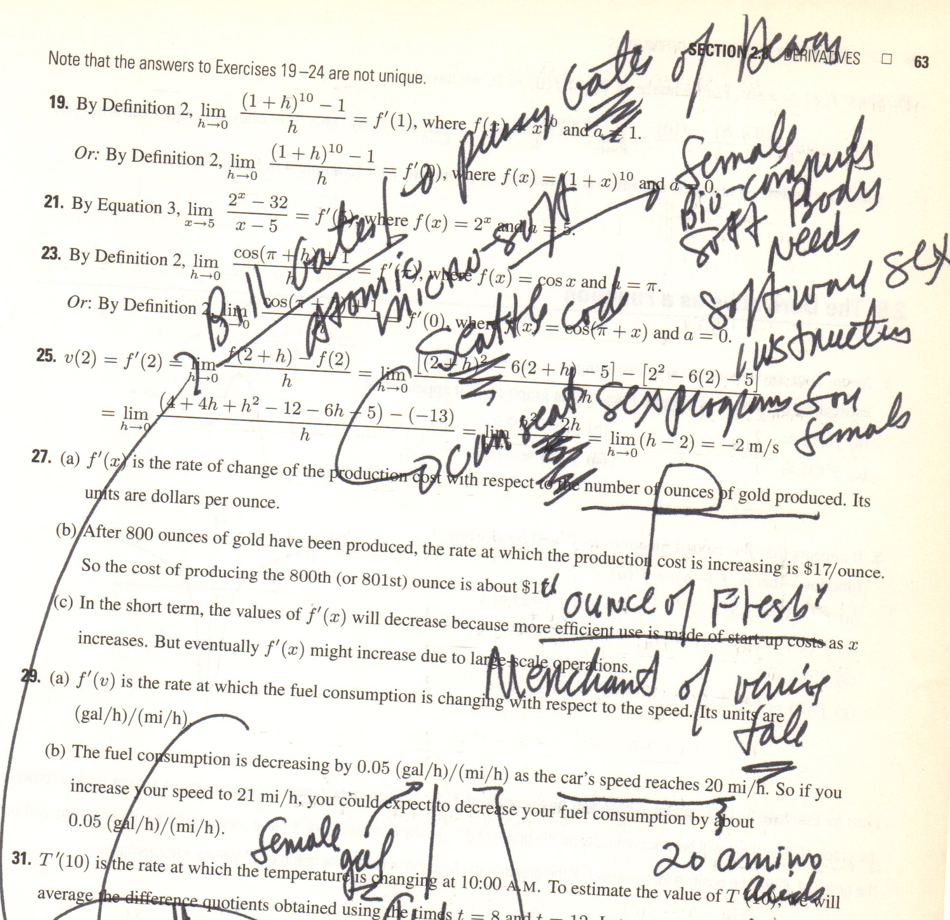 SECTION 2.8 DERIVATIVES □ 63
Note that the answers to Exercises 19–24 are not unique.
Bill Gates! → pussy Gates of
19. By Definition 2, lim h→0 ((1 + h)^10 − 1)/h = f′(1), where f(x) = x^10 and a = 1.
Or: By Definition 2, lim h→0 ((1 + h)^10 − 1)/h = f′(0), where f(x) = (1 + x)^10 and a = 0.
female
Bio-computers
soft Body
needs
softwar sex
instructies
21. By Equation 3, lim x→5 (2^x − 32)/(x − 5) = f′(5), where f(x) = 2^x and a = 5.
atomic
micro-soft
23. By Definition 2, lim h→0 (cos(π + h) + 1)/h = f′(π), where f(x) = cos x and a = π.
Or: By Definition 2, lim h→0 (cos(π + h) + 1)/h = f′(0), where f(x) = cos(π + x) and a = 0.
Seattle code
25. v(2) = f′(2) = lim h→0 (f(2 + h) − f(2))/h = lim h→0 ([(2 + h)² − 6(2 + h) − 5] − [2² − 6(2) − 5])/h
= lim h→0 ((4 + 4h + h² − 12 − 6h − 5) − (−13))/h = lim h→0 (h² − 2h)/h = lim h→0 (h − 2) = −2 m/s
seat sex programs for
females
27. (a) f′(x) is the rate of change of the production cost with respect to the number of ounces of gold produced. Its
units are dollars per ounce.
(b) After 800 ounces of gold have been produced, the rate at which the production cost is increasing is $17/ounce.
So the cost of producing the 800th (or 801st) ounce is about $17.
ounce of Flesh
(c) In the short term, the values of f′(x) will decrease because more efficient use is made of start-up costs as x
increases. But eventually f′(x) might increase due to large-scale operations.
Merchant of venis
tale
29. (a) f′(v) is the rate at which the fuel consumption is changing with respect to the speed. Its units are
(gal/h)/(mi/h).
(b) The fuel consumption is decreasing by 0.05 (gal/h)/(mi/h) as the car's speed reaches 20 mi/h. So if you
increase your speed to 21 mi/h, you could expect to decrease your fuel consumption by about
0.05 (gal/h)/(mi/h).
female
gal
20 amino
acids
31. T′(10) is the rate at which the temperature is changing at 10:00 A.M. To estimate the value of T′(10), we will
average the difference quotients obtained using the times t = 8 and t = 12.